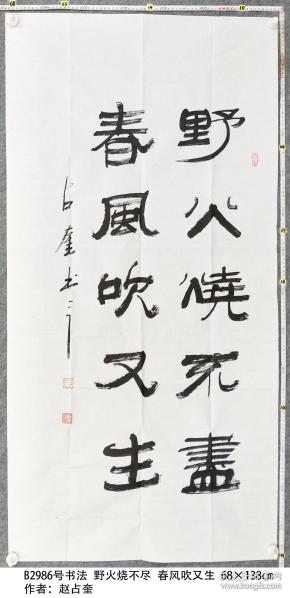 野火燒不盡
春風吹又生
占奎书
B2986号书法 野火烧不尽 春风吹又生 68×138cm
作者：赵占奎